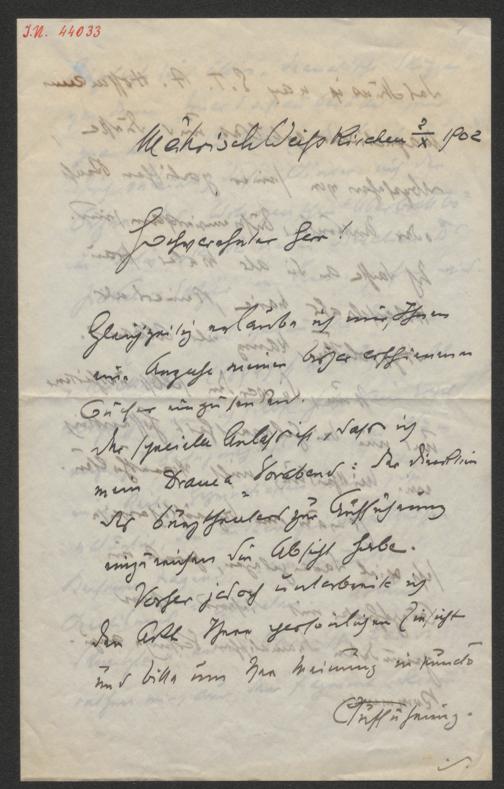 I.N. 44033
Mährisch Weißkirchen 2/X 1902
Hochverehrter Herr!
Gleichzeitig erlaube ich mir, Ihnen
eine Anzahl meiner bisher erschienenen
Bücher einzusenden.
Der specielle Anlass ist, dass ich
mein Drama "Vorabend" der Direction
des Burgtheaters zur Aufführung
einzureichen die Absicht habe.
Vorher jedoch unterbreite ich
den Ihrer persönlichen Einsicht
und bitte um Ihre Meinung in puncto
Aufführung.